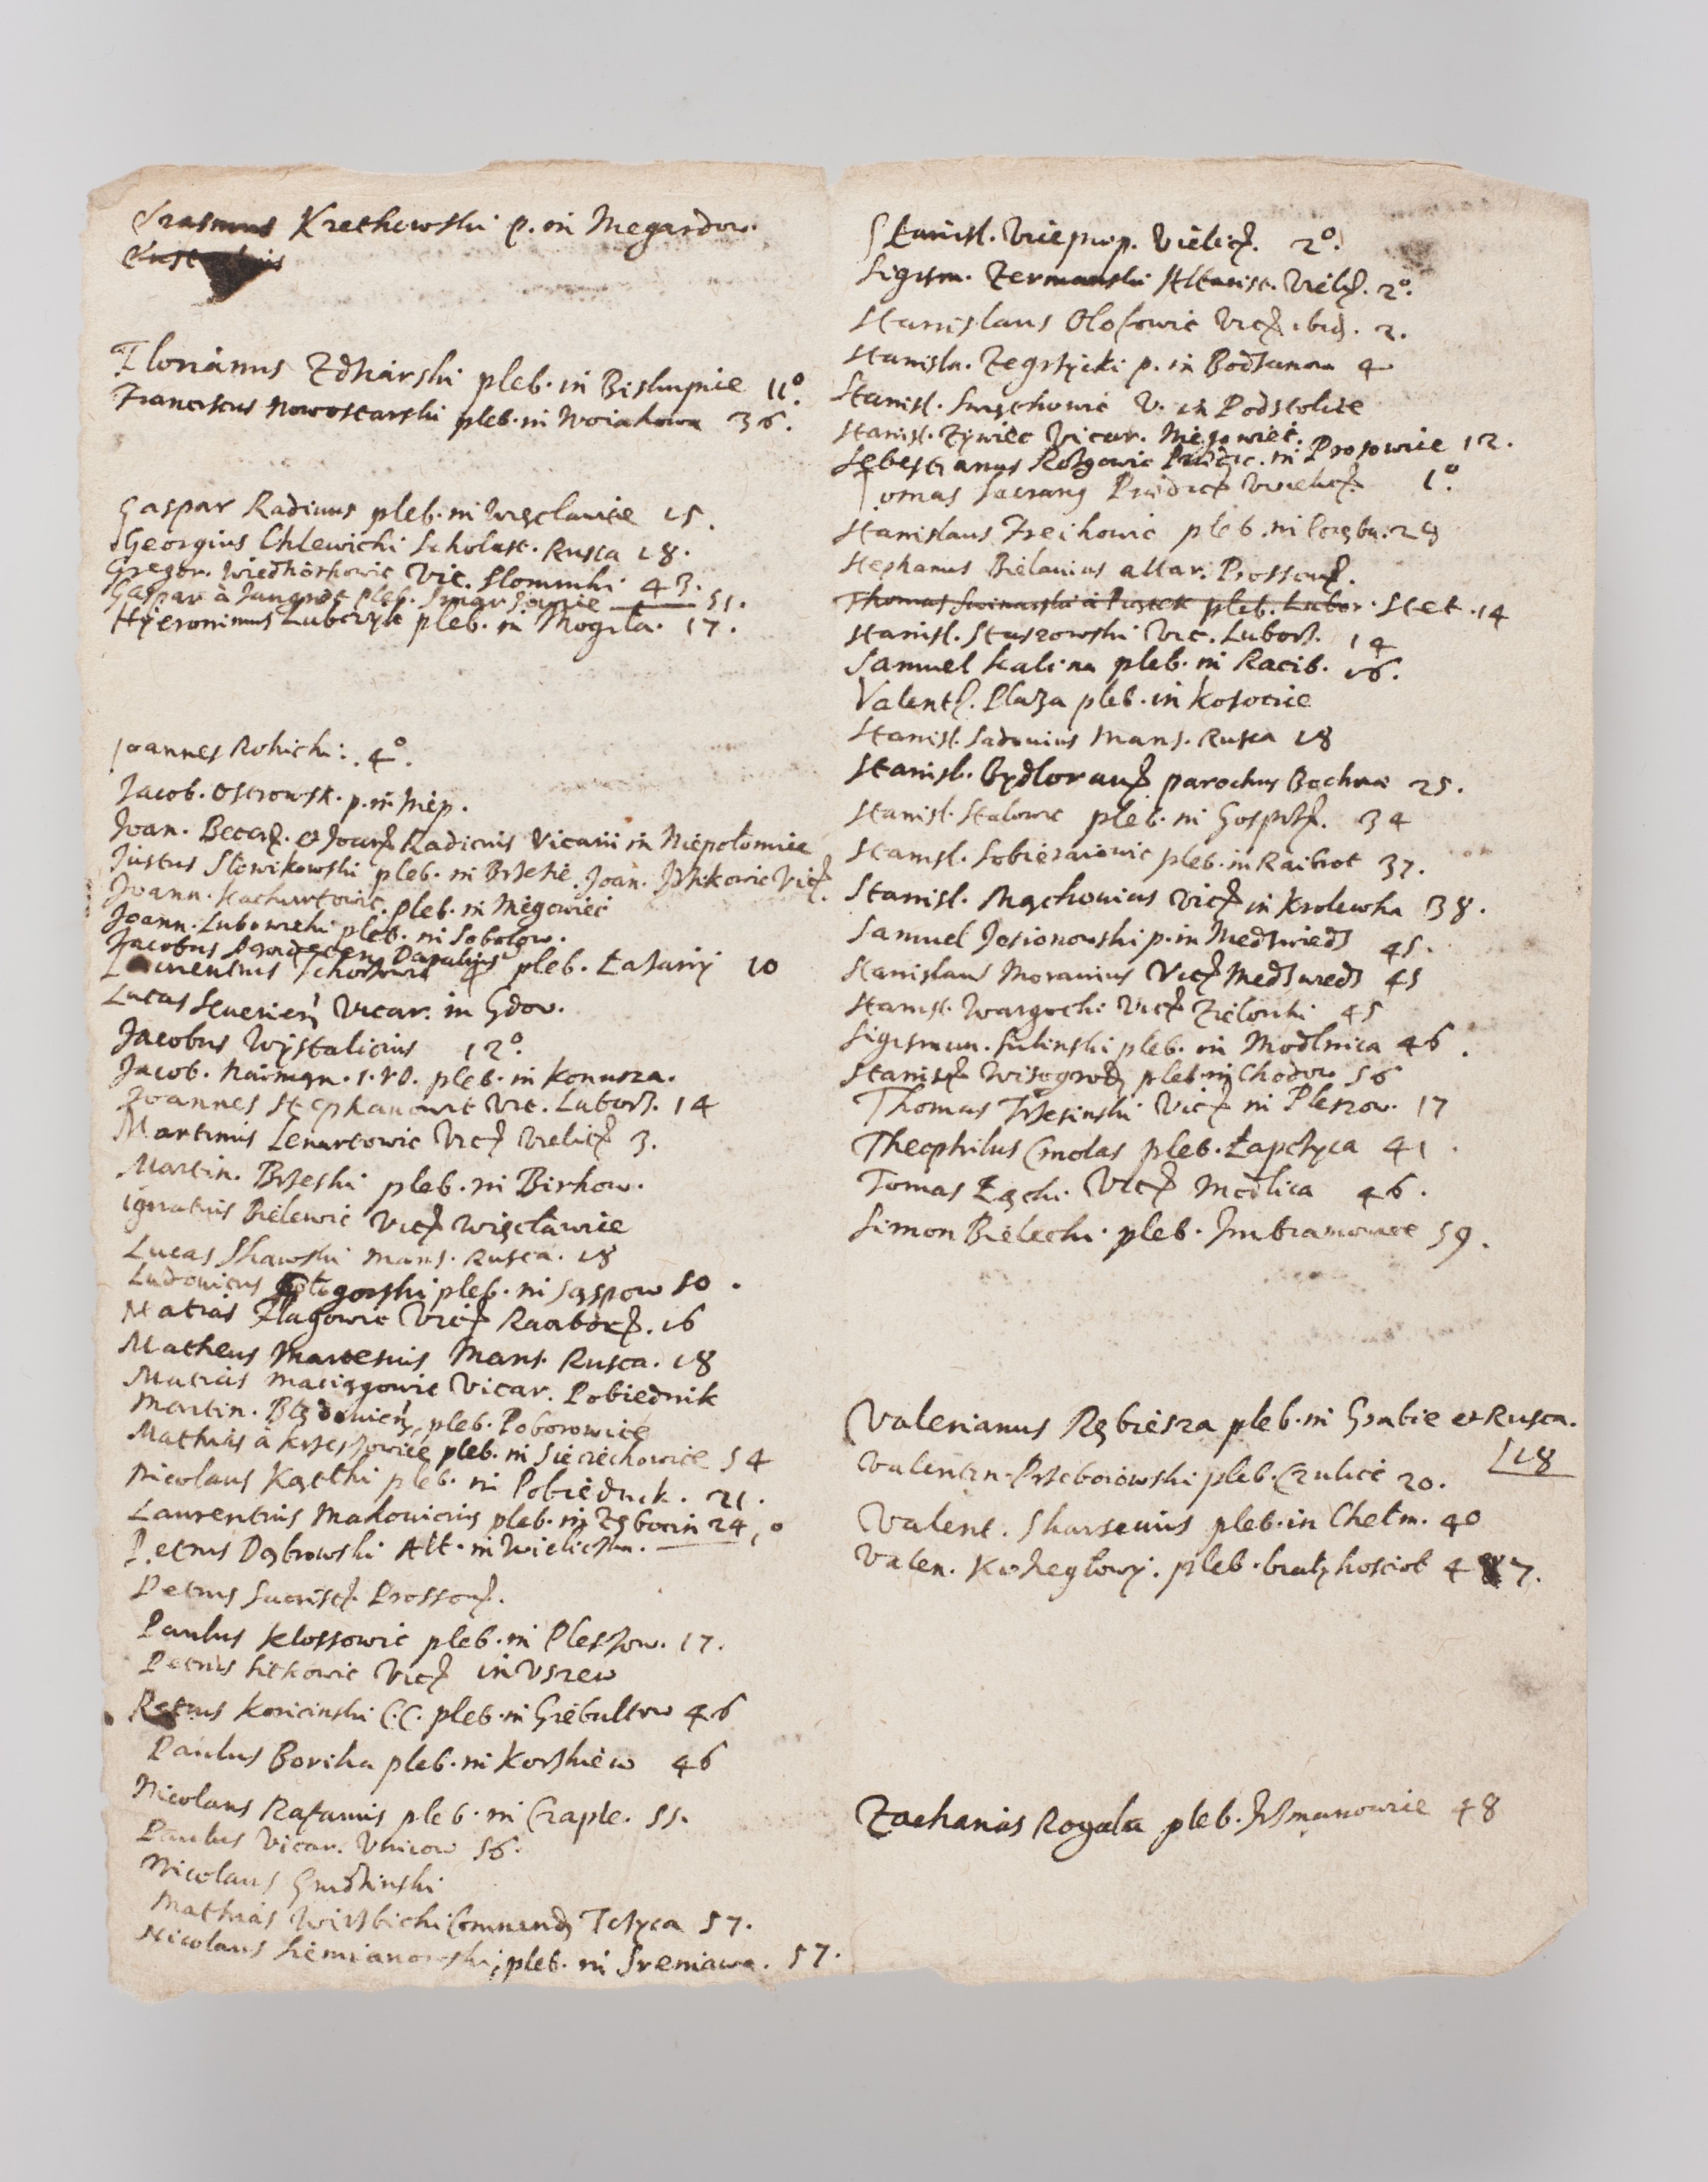 Erasmus Krethowski p. in Niegardow.
Florianus Zdharski pleb. in Biskupice 11º.
Franciscus Nowotarski pleb. in Woiakowa 36.
Gaspar Radimus pleb. in Więclawice 15.
Georgius Chlewicki Scholast. Rusca 18.
Gregor. Vic. Slomniki 43.
Gaspar à pleb. 51.
Hÿeronimus Lubczyk pleb. in Mogila. 17.
Joannes Rohicki. 4º.
Jacob. Ostrowsk. p. in Niep.
Joan. et Joan Radicius Vicarii in Niepołomice
Justus Slewikowski pleb. in Brzezie. Joan.
Joann. pleb. in Niegowieć
Joann. Lubowiecki pleb. in Sobolow.
Jacobus
Laurentius pleb. Łazany 10
Lucas Vicar. in Gdov.
Jacobus Wÿstalicius 12º
Jacob. Naiman. pleb. in Konusza.
Joannes Stephanowic Vic. Luborz. 14
Martinus Lenartowic Vic Vielic 3.
Martin. Brzeski pleb. in Birkow.
Ignatius Bielewic Vic Więcławice
Lucas Skawski Mans. Rusca. 18
Ludovicus pleb. in Sąspow 50.
Matias Zlagowic Vic Raciborz. 16
Matheus Martenius Mans. Rusca. 18
Matias Maciągowic Vicar. Pobiednik
Martin. pleb. Poborowice
Mathias à Krzeszowice pleb. in Sieciechowice 54
Nicolaus Kącthi pleb. in Pobiednik. 21.
Laurentius Makovicius pleb. in Zębocin 24
Petrus Dąbrowski Alt. in Wieliczka. 1º
Petrus Prossow.
Paulus Klossowic pleb. in Pleszow. 17.
Petrus Sitkowic Vic in Uszew
Petrus Koricinski C.C. pleb. in Giebultow 46
Paulus Boriha pleb. in Korzkiew 46
Nicolaus Rafamis pleb. in Czaple. 55.
Paulus Vicar. Vnicow 56.
Nicolaus Grudzinski
Mathias Wirzbichi Commend Tczyca 57.
Nicolaus Siemianowski, pleb. in Sreniawa. 57.
Stanisl. Viceprep. Vielicz. 2º.
Sigism. Zermanski Altarist. Vielicz. 2º.
Stanislaus Olofowic Vic ibid. 2.
Stanisla. Zegrzycki p. in Bodzanow 4
Stanisl. Swięchowic V. in Podstolice
Stanisl. Zÿwiec Vicar. Niegowieć.
Sebestianus Rożgowic in Prosowice 12.
Tomas Vielicz 1º.
Stanislaus Freihowic pleb. in Poręba. 29
Stephanus Bielavius altar. Prossow.
Thomas à Piasek pleb. Lubor. Stet. 14
Stanisl. Staszowski Vic. Luborz. 14
Samuel Kalina pleb. in Racib. 16.
Valent. Plaza pleb. in Kosocice
Stanisl. Sadovius Mans. Rusca 18
Stanisl. parochus Bochnae 25.
Stanisl. Stalowic pleb. in Gosprz. 34
Stanisl. Sobieraiowic pleb. in Raibrot 37.
Stanisl. Męchovius Vic in Krolewka 38.
Samuel Josionowski p. in Medzwiedz 45.
Stanislaus Moravius Vic Medzwiedz 45
Stanisl. Wargocki Vic Zielonki 45
Sigismun. Sulinski pleb. in Modlnica 46.
Stanisl Wisogrod pleb. in Chodow 56
Thomas Trzesinski Vic in Pleszow. 17
Theophilus Cmolas pleb. Łapczyca 41.
Tomas Łącki Vic Modlica 46.
Simon Bielecki pleb. Imbramowice 59.
Valerianus Rębiesza pleb. in Grabie et Rusca.
18
Valentin. Przeboiowski pleb. Czulice 20.
Valent. Skarsevius pleb. in Chełm. 40
Valen. pleb. białykosciol 47.
Zacharias Rogala pleb. Irzmanowice 48